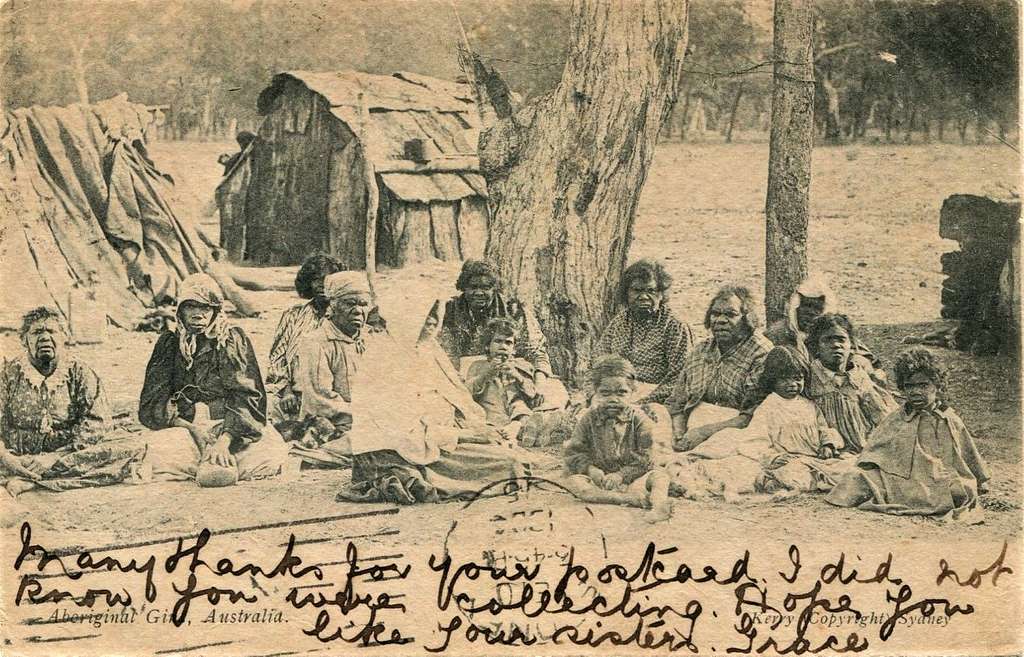 Many thanks for your postcard. I did not
know you were collecting. Hope you
Aboriginal Gins, Australia.
Kerry Copyright Sydney
like your sisters. Grace